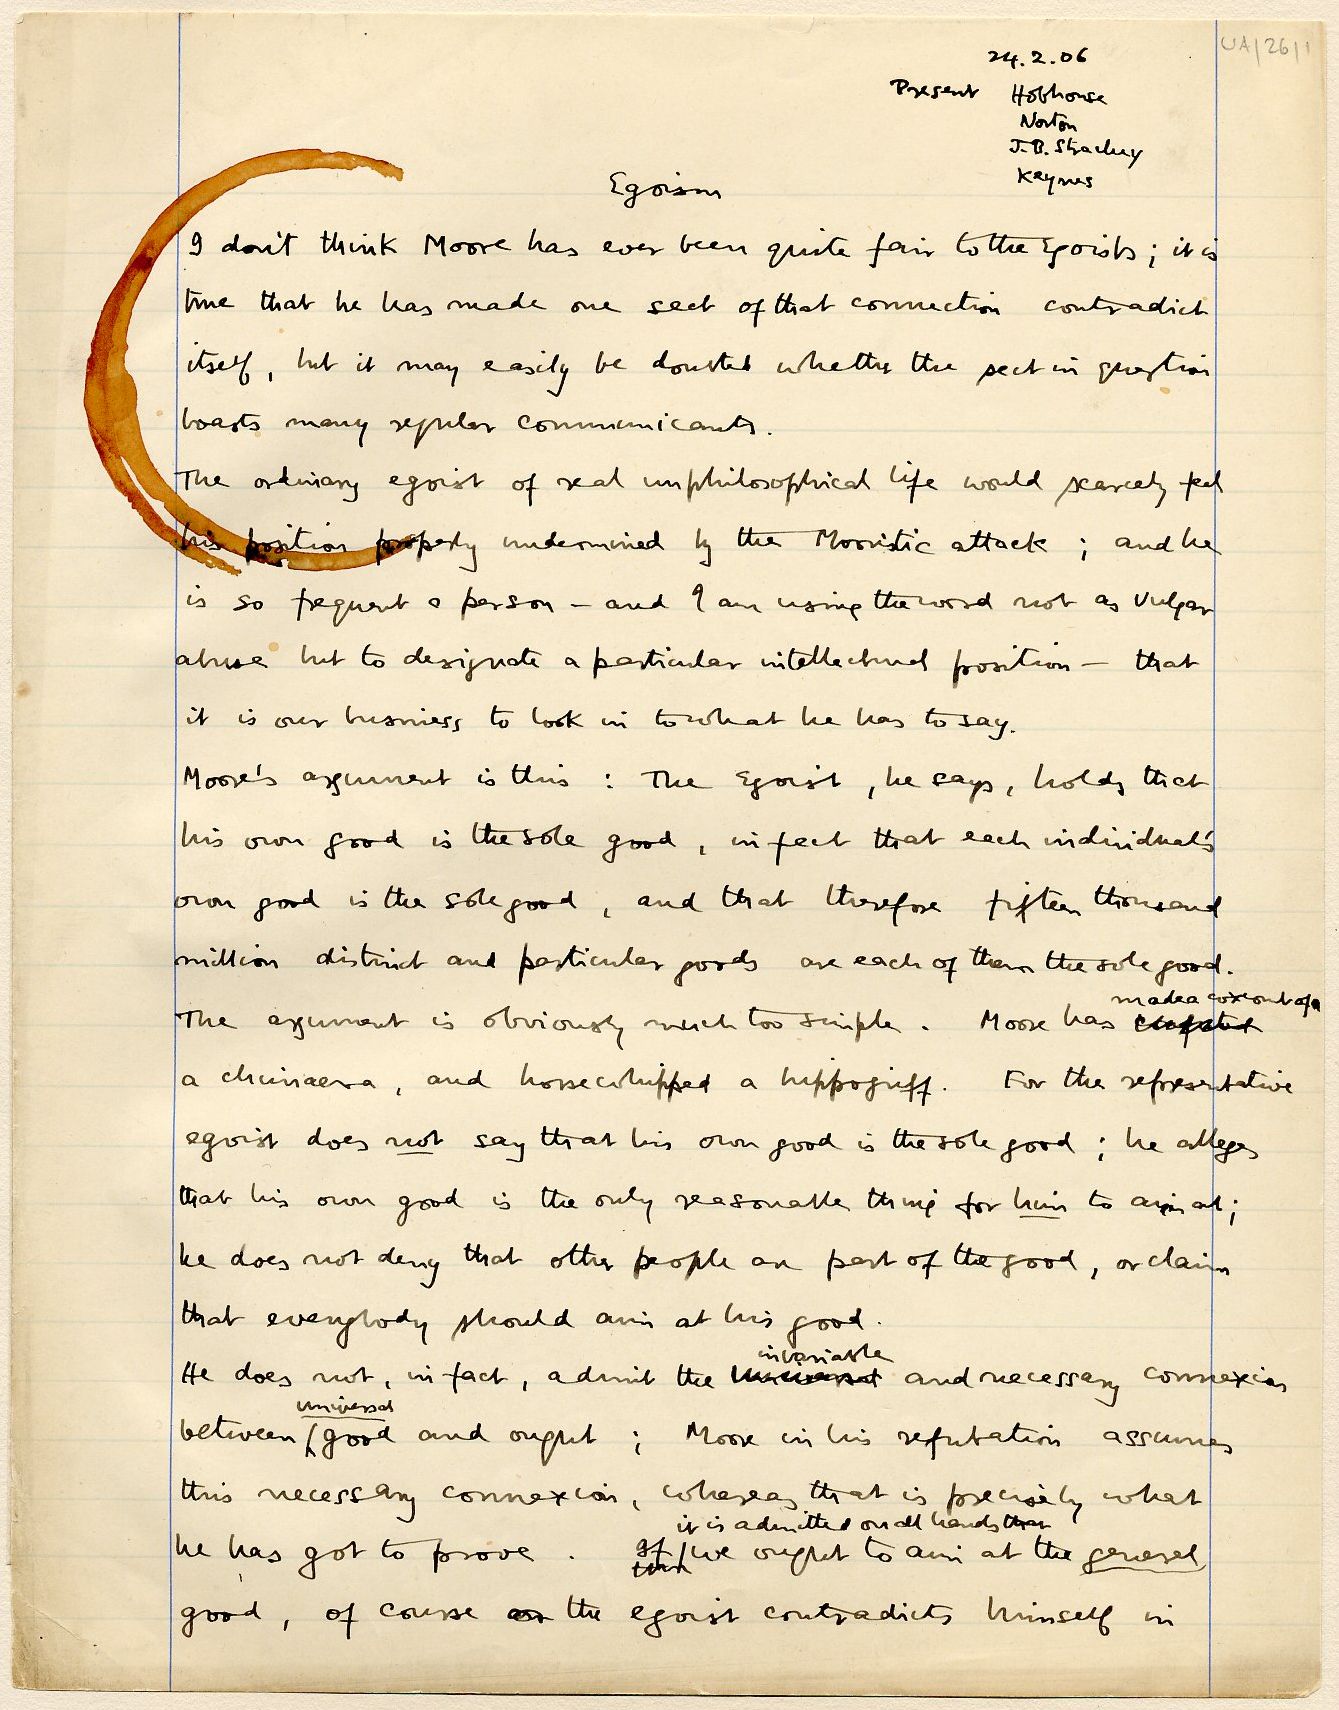 UA/26/1
24.2.06
Present Hobhouse
Norton
J.B. Strachey
Keynes
Egoism
I don't think Moore has ever been quite fair to the Egoists; it is
true that he has made one sect of that connection contradict
itself, but it may easily be doubted whether the sect in question
boasts many regular communicants.
The ordinary egoist of real unphilosophical life would scarcely feel
his position properly undermined by the Mooristic attack; and he
is so frequent a person – and I am using the word not as vulgar
abuse but to designate a particular intellectual position – that
it is our business to look in to what he has to say.
Moore's argument is this: The Egoist, he says, holds that
his own good is the sole good, in fact that each individual's
own good is the sole good, and that therefore fifteen thousand
million distinct and particular goods are each of them the sole good.
made a out of a
The argument is obviously much too simple. Moore has
a chimaera, and horsewhipped a hippogriff. For the representative
egoist does not say that his own good is the sole good; he alleges
that his own good is the only reasonable thing for him to aim at;
he does not deny that other people are part of the good, or claim
that everybody should aim at his good.
invariable
He does not, in fact, admit the universal and necessary connexion
universal
between good and ought; Moore in his refutation assumes
this necessary connexion, whereas that is precisely what
it is admitted on all hands that
he has got to prove. If we ought to aim at the general
good, of course the egoist contradicts himself in